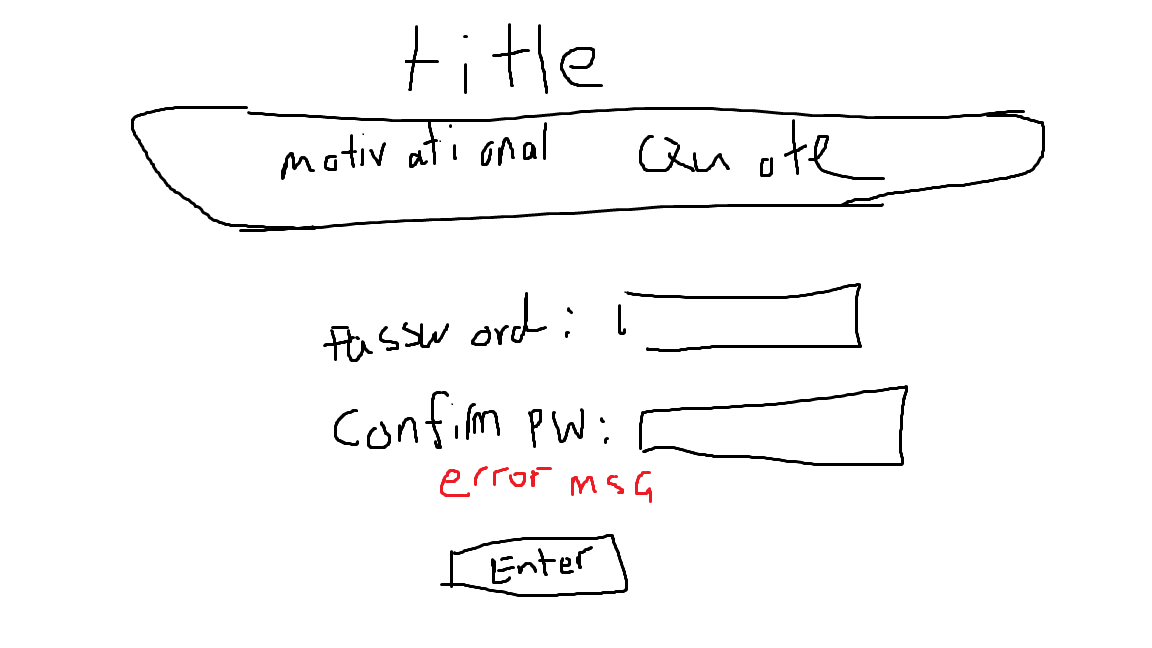 title
motivational Quote
Password:
Confim PW:
error msG
Enter